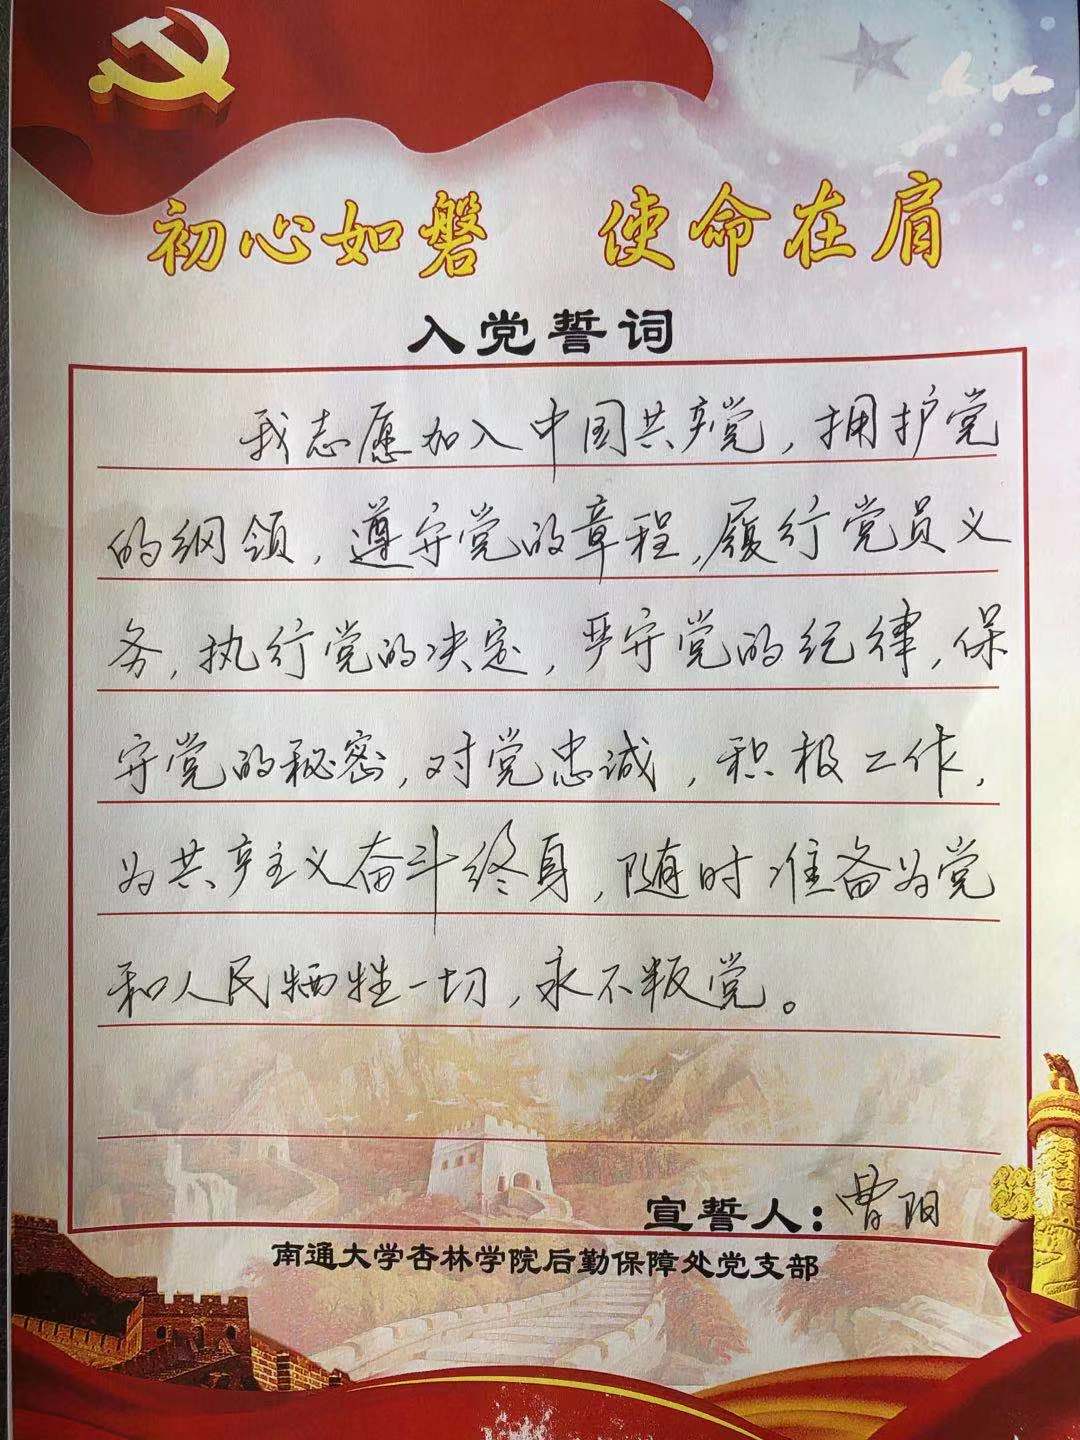 初心如磐 使命在肩
入党誓词
我志愿加入中国共产党，拥护党
的纲领，遵守党的章程，履行党员义
务，执行党的决定，严守党的纪律，保
守党的秘密，对党忠诚，积极工作，
为共产主义奋斗终身，随时准备为党
和人民牺牲一切，永不叛党。
宣誓人：曹阳
南通大学杏林学院后勤保障处党支部